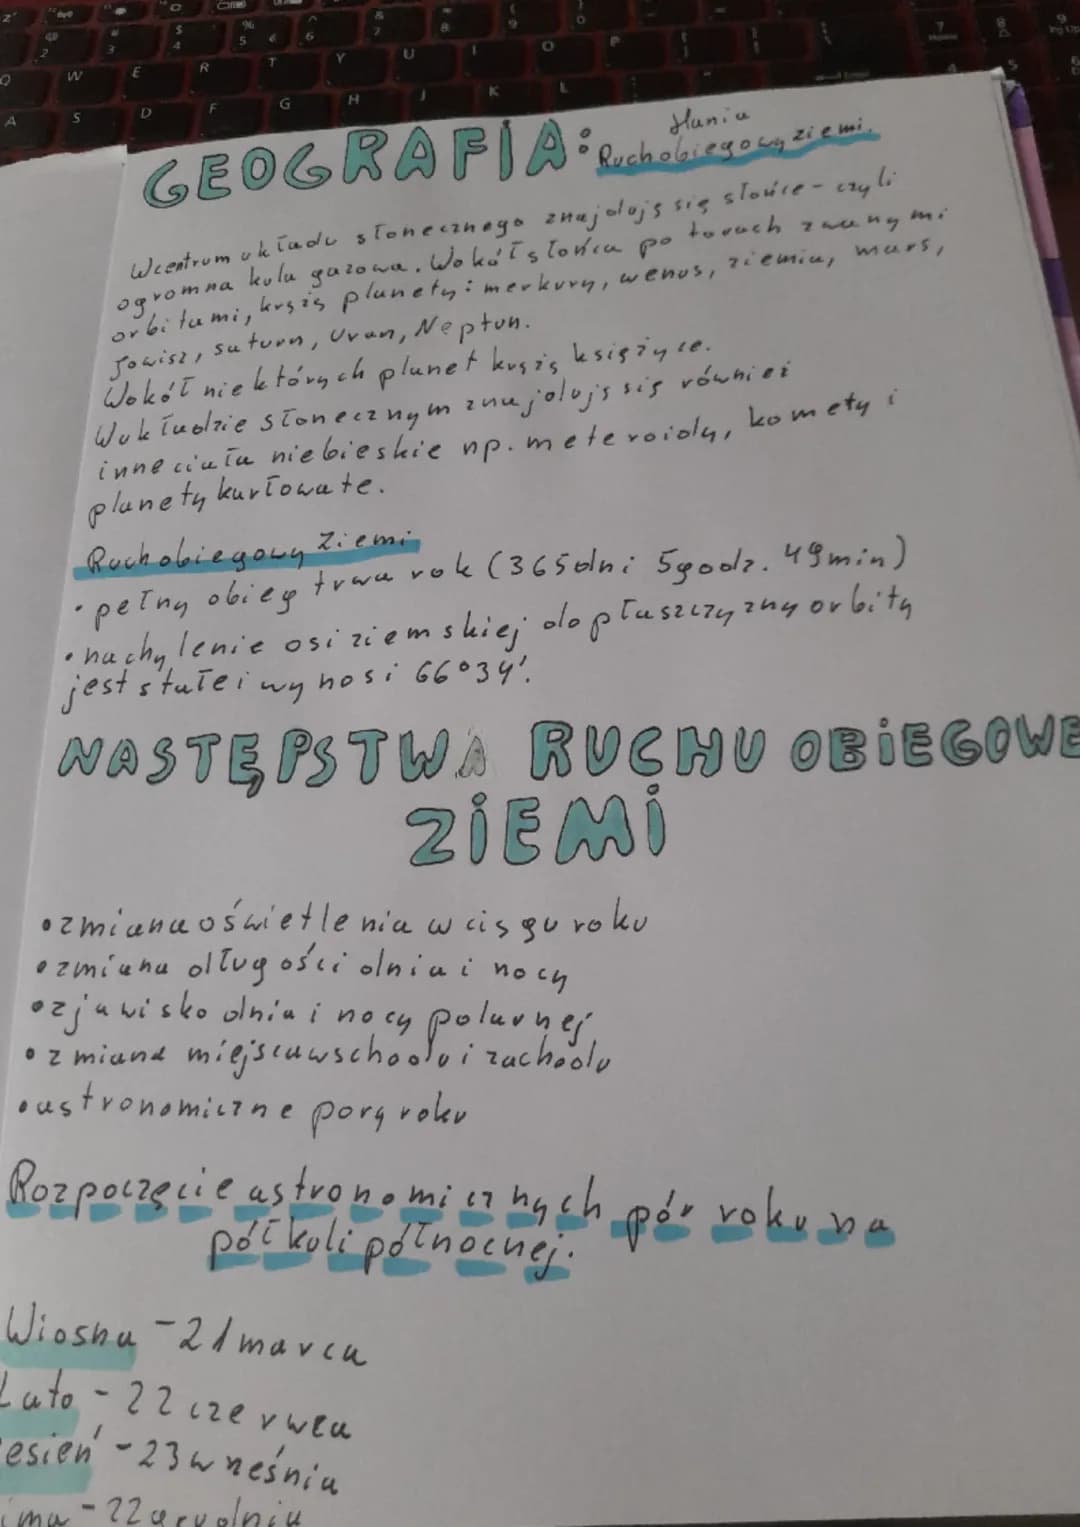 Hania
GEOGRAFIA: Ruch obiegowy ziemi.
W centrum układu słonecznego znajdują się słońce - czyli
ogromna kula gazowa. Wokół słońca po torach zwanymi
orbitami, krążą planety: merkury, wenus, ziemia, mars,
Jowisz, saturn, Uran, Neptun.
Wokół niektórych planet krążą księżyce.
W układzie słonecznym znajdują się również
inne ciała niebieskie np. meteroidy, komety i
planety karłowate.
Ruch obiegowy Ziemi
• pełny obieg trwa rok (365 dni 5 godz. 49 min)
• nachylenie osi ziemskiej do płaszczyzny orbity
jest stałe i wynosi 66°34'.
NASTĘPSTWA RUCHU OBIEGOWE
ZIEMI
• zmiana oświetlenia w ciągu roku
• zmiana długości dnia i nocy
• zjawisko dnia i nocy polarnej
• zmiana miejsca wschodu i zachodu
• astronomiczne pory roku
Rozpoczęcie astronomicznych pór roku na
półkuli północnej.
Wiosna - 21 marca
Lato - 22 czerwca
esień - 23 wneśnia
ima - 22 grudnia